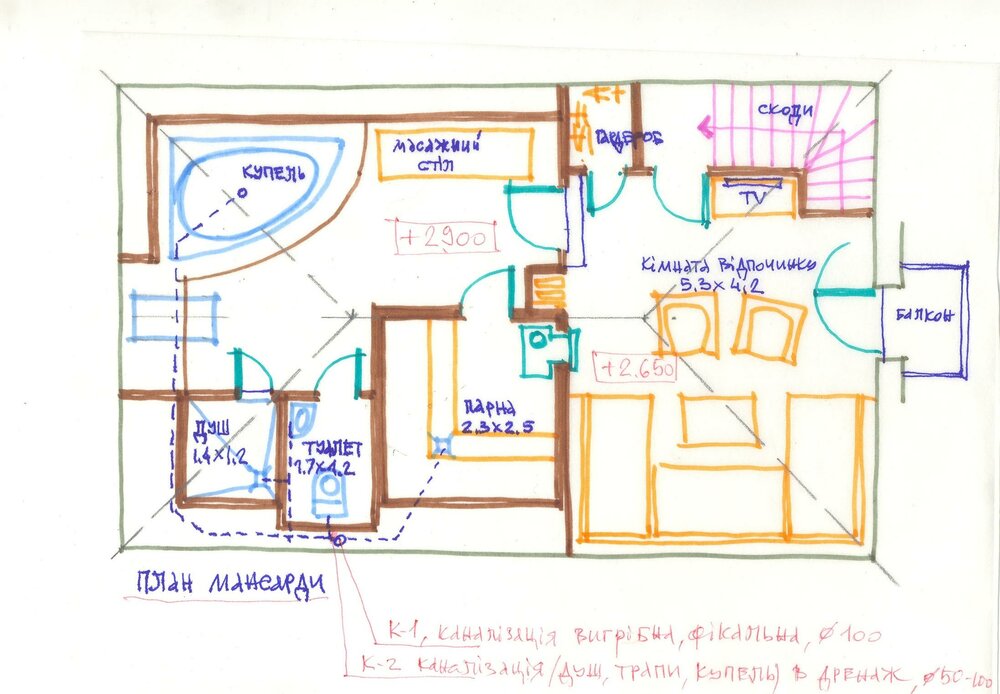 СХОДИ
ГАРДЕРОБ
МАСАЖНИЙ
СТІЛ
КУПЕЛЬ
TV
+2900
КІМНАТА ВІДПОЧИНКУ
5.3 x 4.2
БАЛКОН
+2.650
ПАРНА
2.3 x 2.5
ДУШ
1.4 x 1.2
ТУАЛЕТ
1.7 x 1.2
ПЛАН МАНСАРДИ
К-1, КАНАЛІЗАЦІЯ ВИГРІБНА, ФІКАЛЬНА, Ø100
К-2 КАНАЛІЗАЦІЯ (ДУШ, ТРАПИ, КУПЕЛЬ) В ДРЕНАЖ, Ø50-100